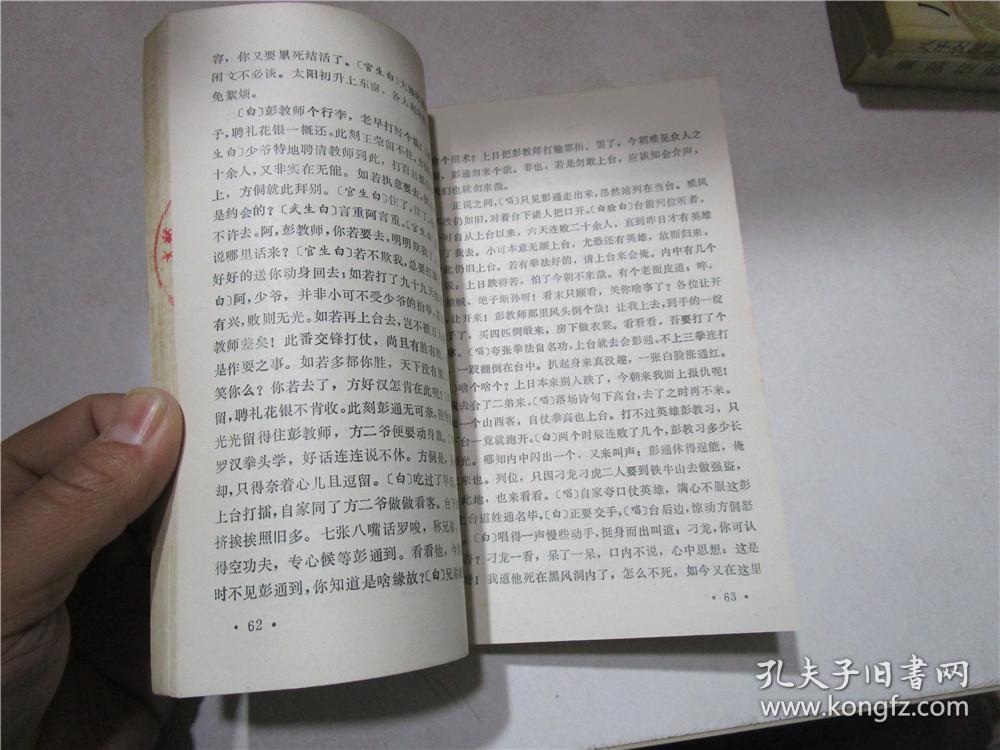 容，你又要累死结活了。〔官生白〕大
闲文不必谈。太阳初升上东窗，各人
免絮烦。
〔白〕彭教师个行李，老早打好个
子，聘礼花银一概还。此刻王荣留不住，方
生白〕少爷特地聘请教师到此，打百日擂
十余人，又非实在无能。如若执意要去，
上，方侗就此拜别。〔官生白〕住了，住了，
是约会的？〔武生白〕言重阿言重。〔官生
不许去。阿，彭教师，你若要去，明明欺我
说哪里话来？〔官生白〕若不欺我，总要打
好好的送你动身回去；如若打了九十九天
白〕阿，少爷，并非小可不受少爷的抬举，
有兴，败则无光。如若再上台去，岂不被万人
教师差矣！此番交锋打仗，尚且有胜有
是作耍之事。如若多都你胜，天下没有
笑你么？你若去了，方好汉怎肯在此呢？
留，聘礼花银不肯收。此刻彭通无可奈，
光光留得住彭教师，方二爷便要动身
罗汉拳头学，好话连连说不休。方侗是，
却，只得奈着心儿且逗留。〔白〕吃过了早
上台打擂，自家同了方二爷做做看客。台下
挤挨挨照旧多。七张八嘴话罗唆，称兄
得空功夫，专心候等彭通到。看看他，今
时不见彭通到，你知道是啥缘故？〔白〕兄
·62·
个招术？上日把彭教师打输那相。罢了。今朝难见众人之
彭通勿来个哉。非也，若是勿敢上台，应该知会介声，
们也就勿来哉。
正说之间，〔唱〕只见彭通走出来，昂然站列在当台。威风
改仍如旧，对着台下诸人把口开。〔白脸白〕台前列位听着，
可自从上台以来，六天连败二十余人，直到昨日才有英雄
了我去。小可本意无颜上台，尤恐还有英雄，故而归来，
此仍旧上台。若有拳法好的，请上台来会俺。内中有几个
说：上日跌得苦，怕了今朝不来哉。有个老面皮道：哞，
贼，绝子断孙呀！看末只顾看，关你啥事了？各位让开
让开来！彭教师那里风头倒个哉！让我上去，到手的一绽
子了，买四匹绸缎来，房下做衣裳。看看看，吾要打了个
客。〔唱〕夸张拳法自名功，上台就去会彭通。不上三拳连打
一跤翻倒在台中。扒起身来真没趣，一张白脸涨通红。
啥个啥个？上日本来别人跌了，今朝来我面上报仇呢！
去合了二弟来。〔唱〕落场诗句下高台，去了之时再不来。
一个山西客，自仗拳高也上台。打不过英雄彭教习，只
台一竟就跑开。〔白〕两个时辰连败了几个，彭教习多少长
光。哪知内中闪出一个，又来叫声：彭通休得逞能，俺
来也。列位，只因刁龙刁虎二人要到铁牛山去做强盗，
此地，也来看看。〔唱〕自家夸口仗英雄，满心不服这彭
上台道姓通名毕，〔白〕正要交手，〔唱〕台后边，惊动方侗怒
〔白〕唱得一声慢些动手，挺身而出叫道：刁龙，你可认
否？刁龙一看，呆了一呆，口内不说，心中思想：这是
！我道他死在黑风洞内了，怎么不死，如今又在这里
·63·
孔夫子旧书网
www.kongfz.com